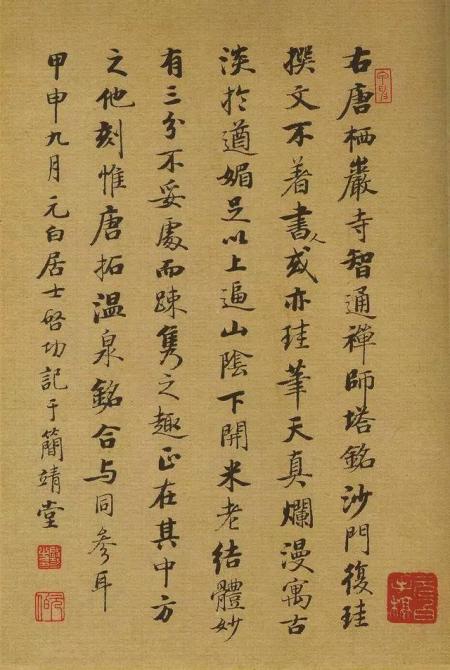 右唐栖巖寺智通禪師塔銘沙門復珪
撰文不著書人或亦珪筆天真爛漫寓古
淡於遒媚足以上逼山陰下開米老結體妙
有三分不妥處而疎雋之趣正在其中方
之他刻惟唐拓溫泉銘合与同參耳
甲申九月元白居士啓功記于簡靖堂